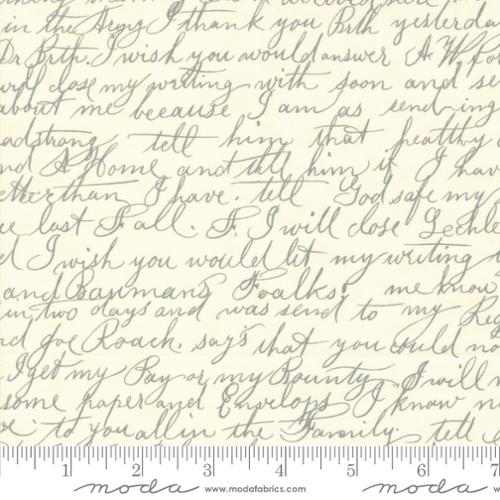 in the Army I thank you Brth yesterda
Dr Brth. I wish you would answer A W
will close my writing with soon and se
about me because I am as sending
adstrong tell him that healthy
nd A Home and tell him if I hav
etter than I have. tell God safe my
e last Fall. F. I will close Lechle
d I wish you would let my writing
and Baumans Foalks, me know
in two days and was send to my Reg
nd Joe Roach. says that you could no
I get my Pay or my Bounty. I will
some paper and Envelops I know
to you all in the Family. tell
1 2 3 4 5 6 7
moda www.modafabrics.com moda